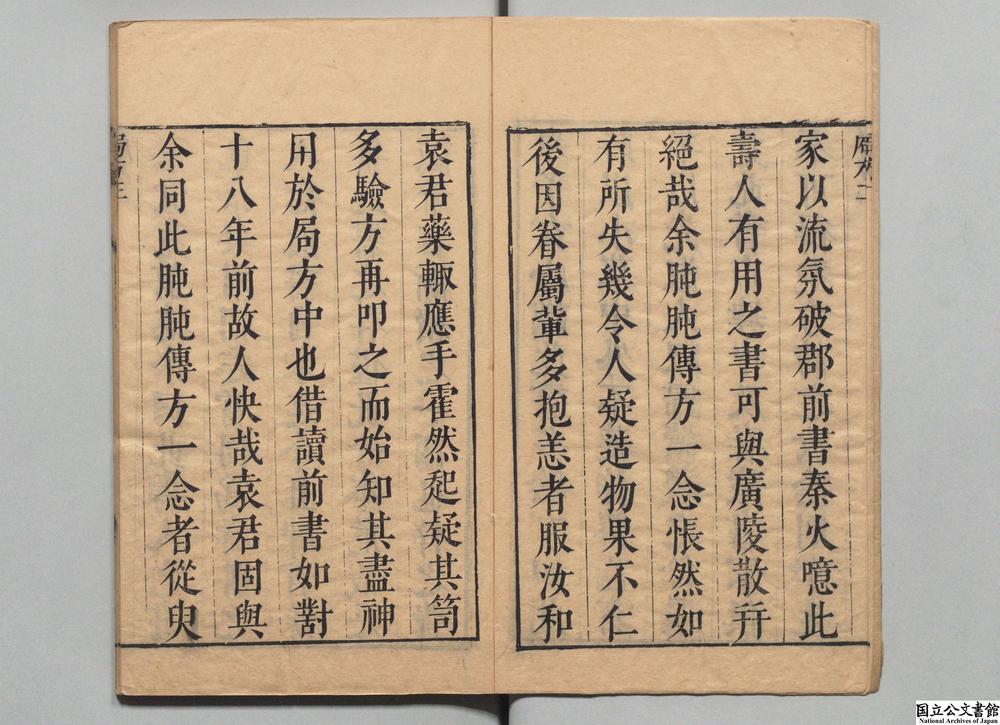 家以流氛破郡前書秦火噫此
壽人有用之書可與廣陵散幷
絕哉余肫肫傳方一念悵然如
有所失幾令人疑造物果不仁
後因眷屬輩多抱恙者服汝和
袁君藥輙應手霍然起疑其笥
多驗方再叩之而始知其盡神
用於局方中也借讀前書如對
十八年前故人快哉袁君固與
余同此肫肫傳方一念者從臾
国立公文書館
National Archives of Japan